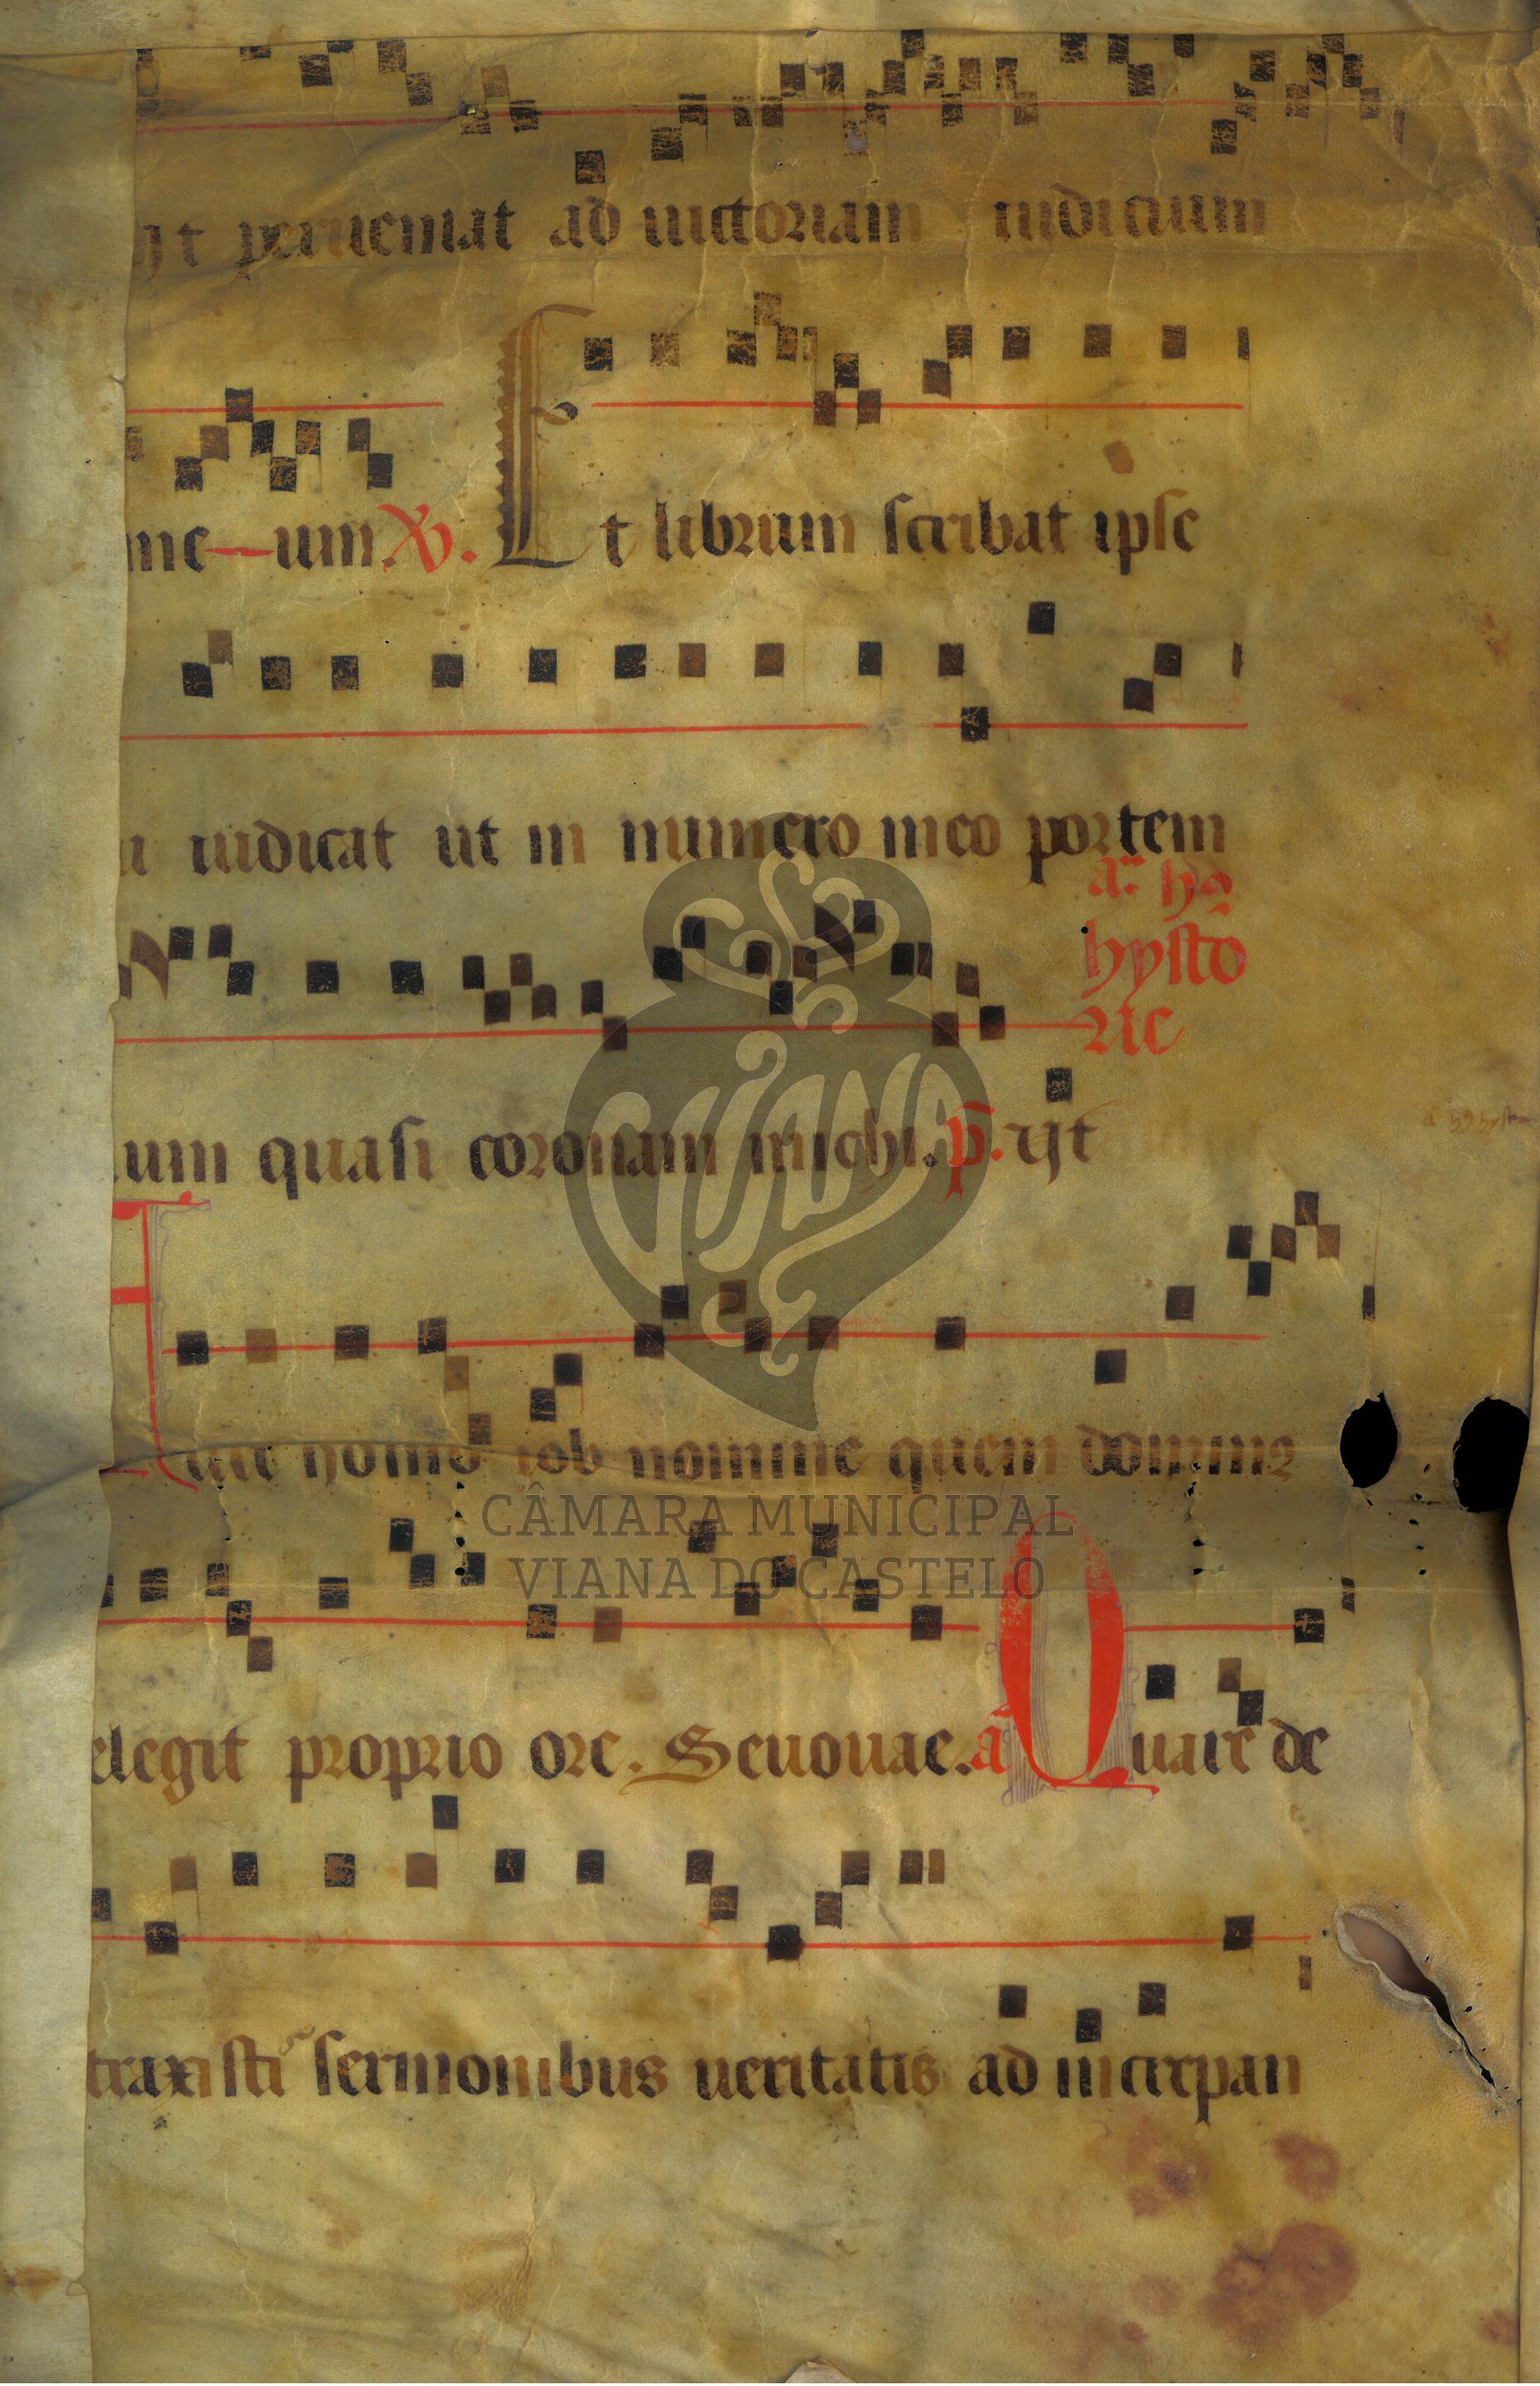 hit perueniat ad uictoriam iudicium
me—um. ℣. Et librum scribat ipse
i iudicat ut in numero meo portem
a͞. h9
hysto
rie
um quasi coronam michi. p̄. rijt
uit homo iob nomine quem domin9
CÂMARA MUNICIPAL
VIANA DO CASTELO
elegit proprio ore. Seuouae. a͞ Quare de
traxisti sermonibus ueritatis ad increpan
VIANA